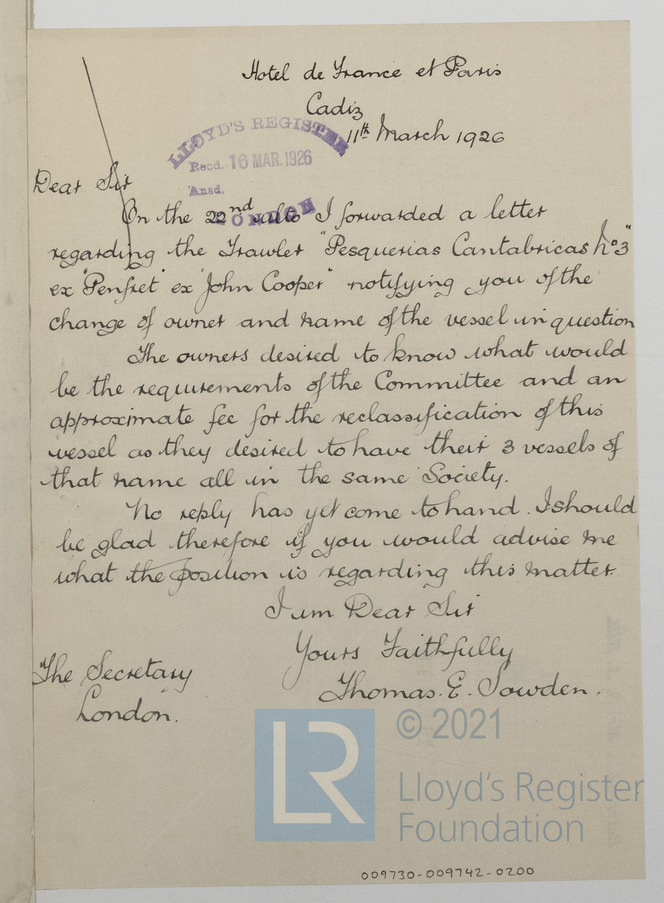 Hotel de France et Paris
Cadiz
11th March 1926
LLOYD'S REGISTER
Recd. 16 MAR. 1926
Ansd.
LONDON
Dear Sir
On the 22nd ulto I forwarded a letter
regarding the Trawler "Pesquerias Cantabricas No 3"
ex "Penfret" ex "John Cooper" notifying you of the
change of owner and name of the vessel in question
The owners desired to know what would
be the requirements of the Committee and an
approximate fee for the reclassification of this
vessel as they desired to have their 3 vessels of
that name all in the same Society.
No reply has yet come to hand. I should
be glad therefore if you would advise me
what the position is regarding this matter.
I am Dear Sir
Yours Faithfully
Thomas. E. Sowden.
The Secretary
London.
LR
© 2021
Lloyd's Register
Foundation
009730-009742-0200